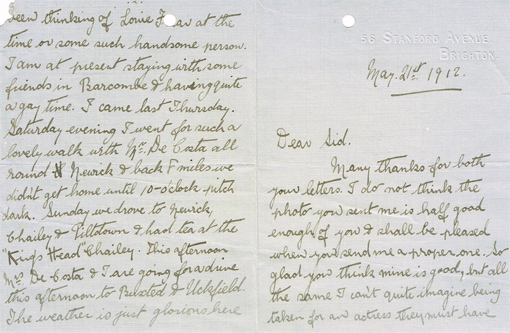 56 STANFORD AVENUE
BRIGHTON
May. 21st 1912.
Dear Sid.
Many thanks for both
your letters. I do not think the
photo you sent me is half good
enough of you & shall be pleased
when you send me a proper one. So
glad you think mine is good, but all
the same I can't quite imagine being
taken for an actress they must have
been thinking of Lorie at the
time or some such handsome person.
I am at present staying with some
friends in Barcombe & having quite
a gay time. I came last Thursday.
Saturday evening I went for such a
lovely walk with Mr. De Costa all
round Newick & back miles we
didn't get home until 10-o'clock pitch
dark. Sunday we drove to Newick,
Chailey & Piltdown & had tea at the
"Kings Head" Chailey. This afternoon
De Costa & I are going for a drive
this afternoon to Buxted & Uckfield.
The weather is just glorious here